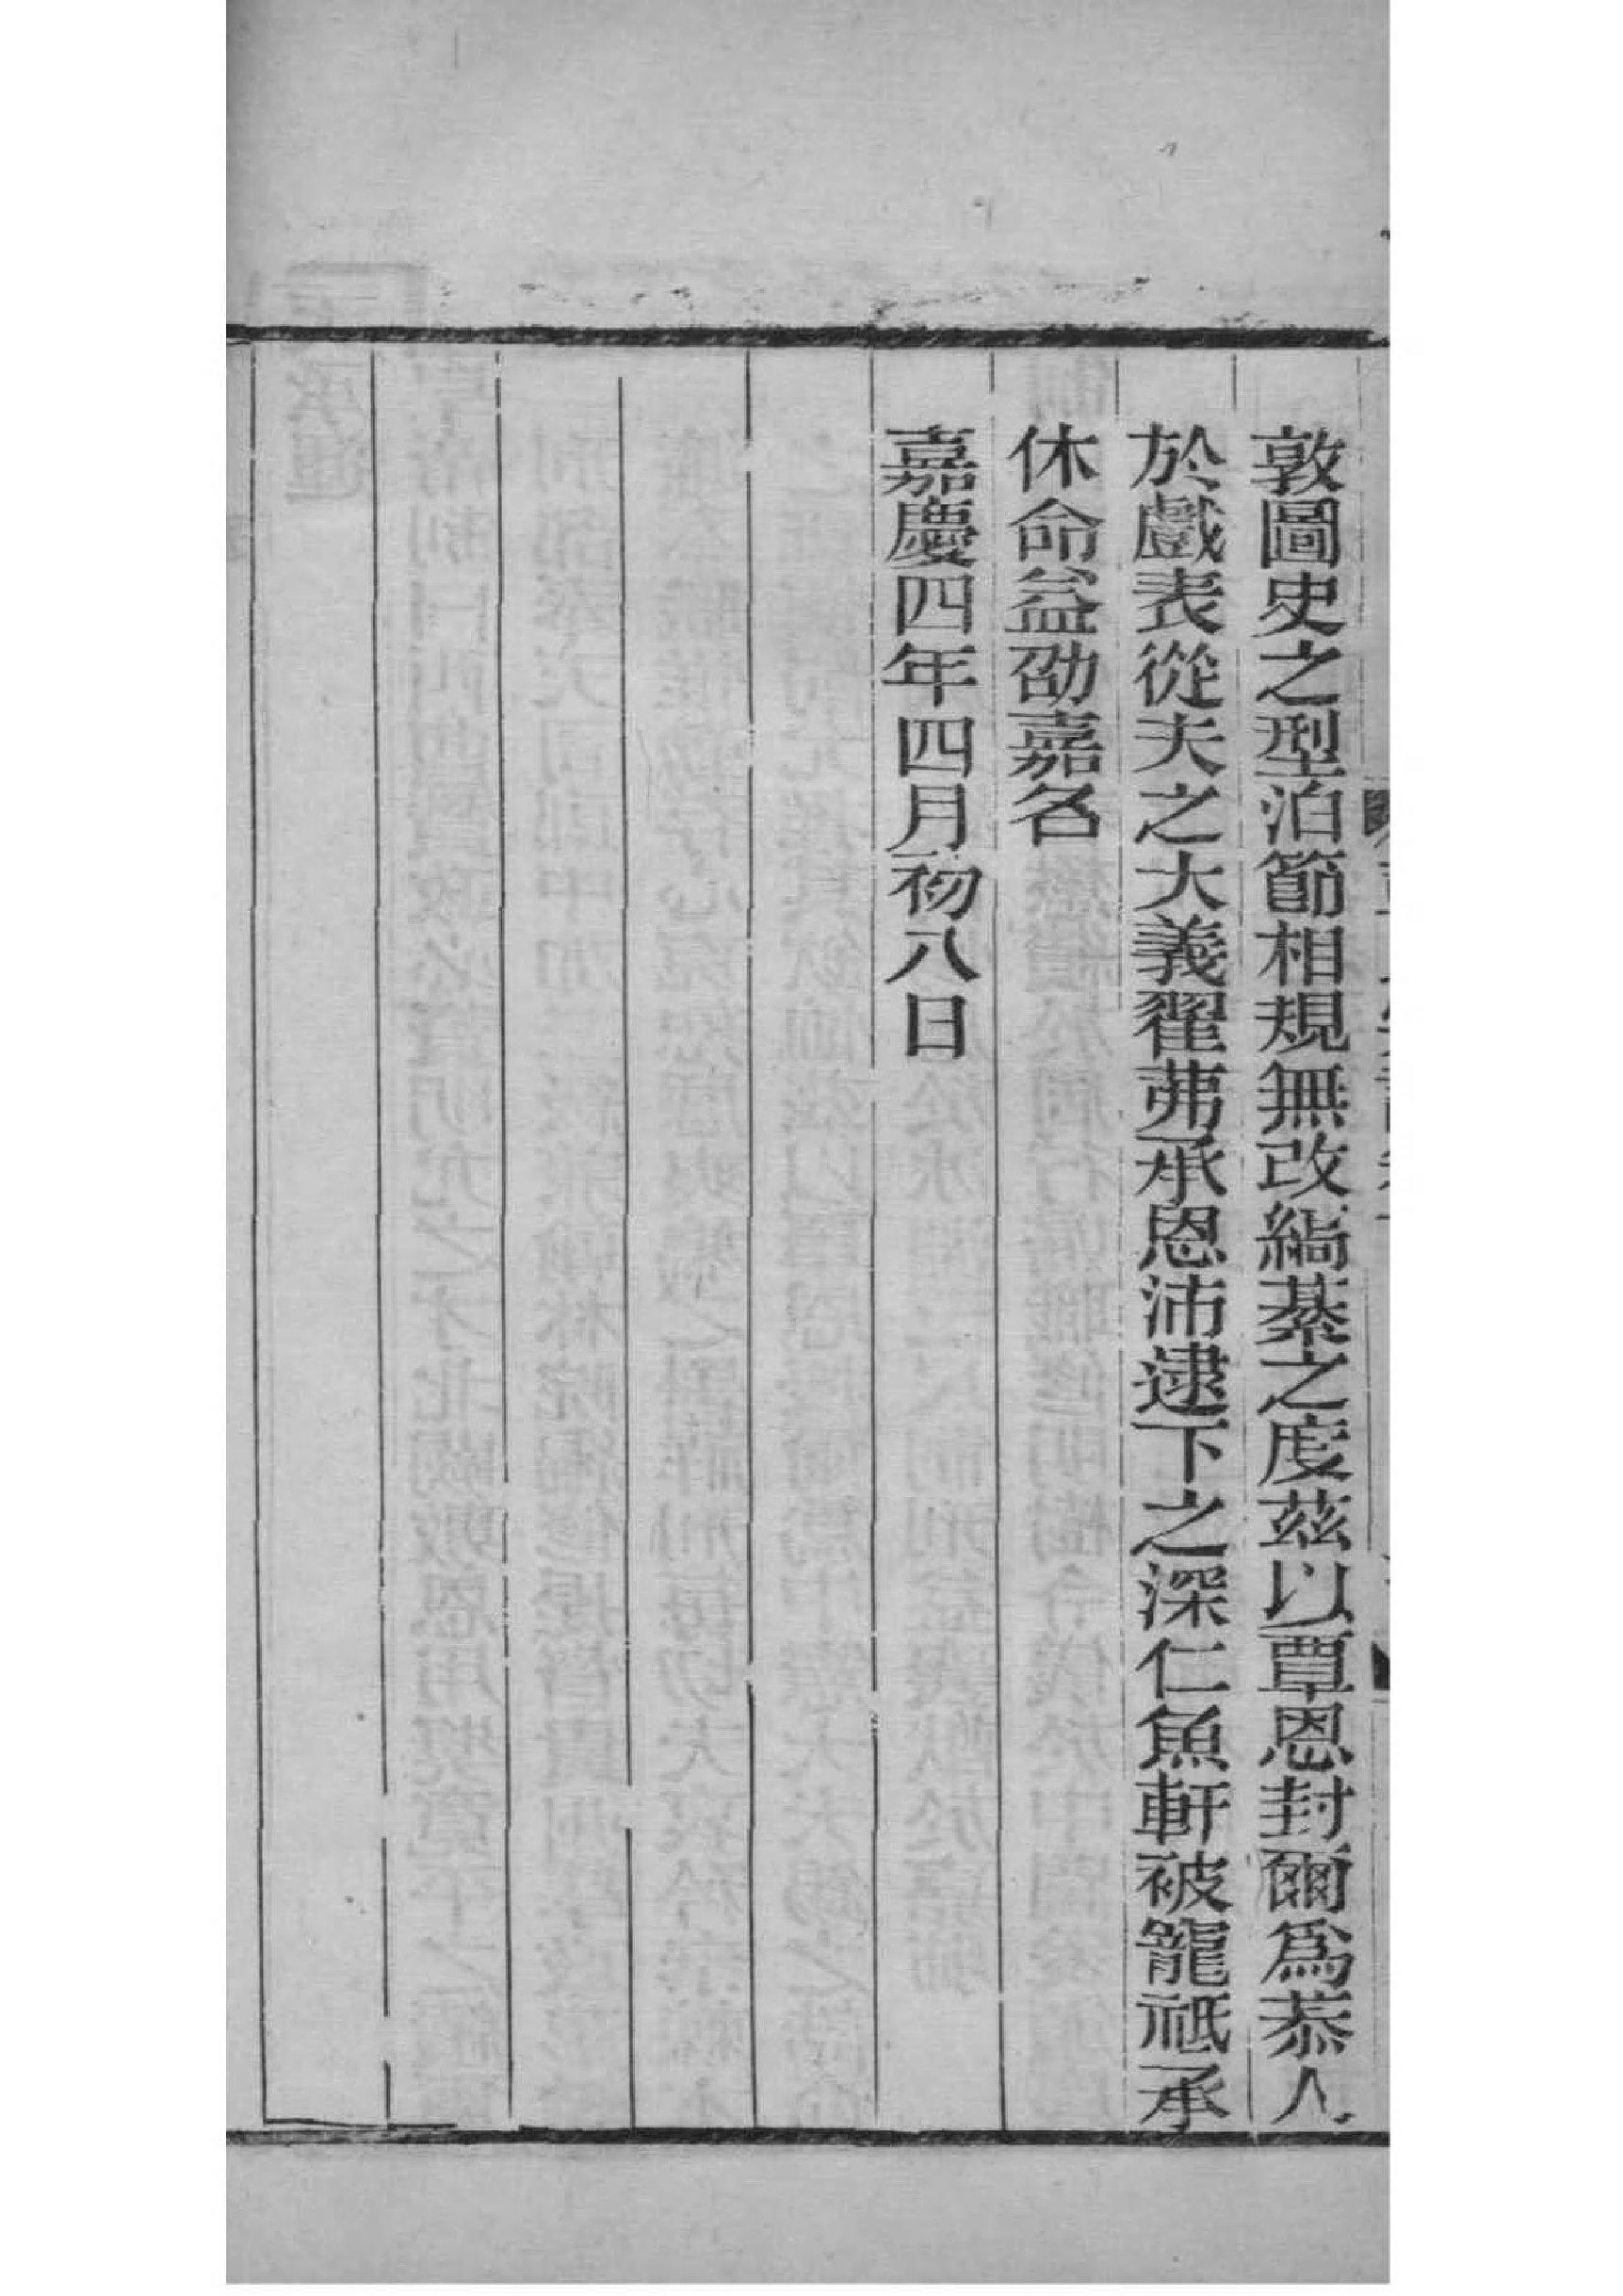 敦圖史之型泊節相規無改縞綦之度茲以覃恩封爾爲恭人
於戲表從夫之大義翟茀承恩沛逮下之深仁魚軒被寵祗承
休命益劭嘉名
嘉慶四年四月初八日